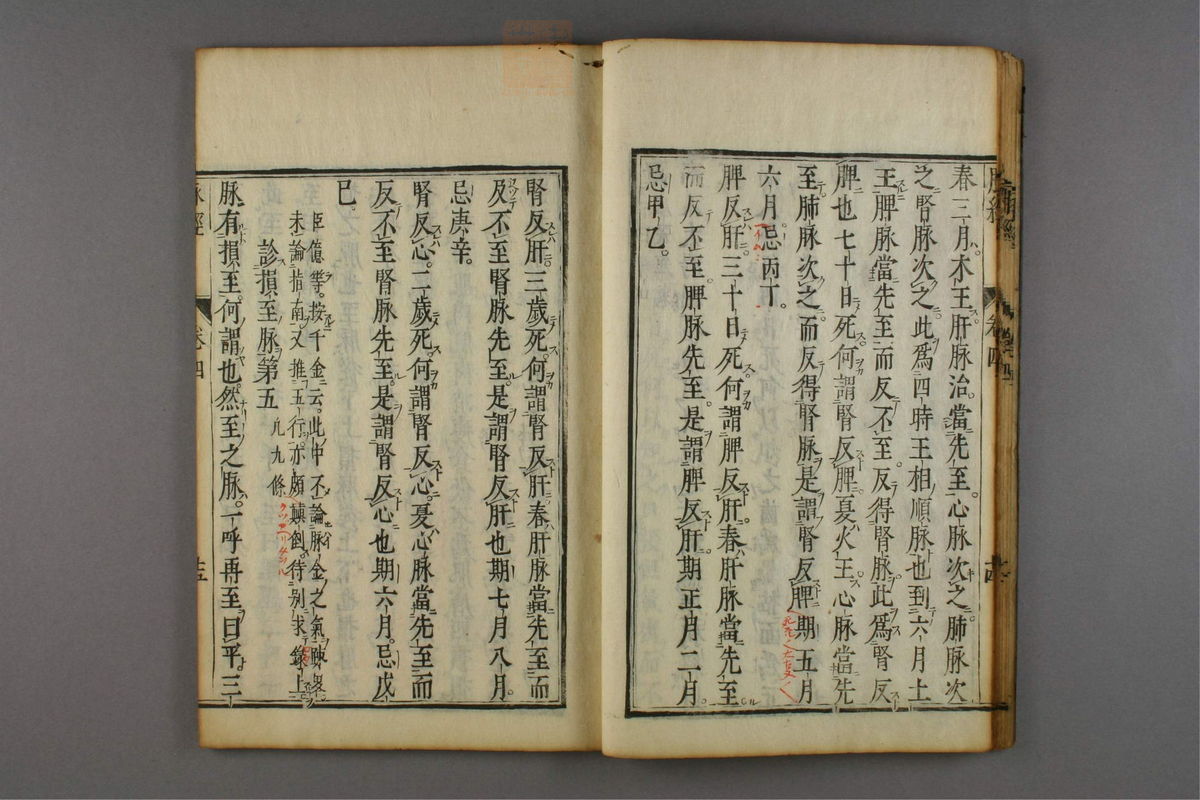 春三月木王肝脉治當先至心脉次之肺脉次
之腎脉次之此爲四時王相順脉也到六月土
王脾脉當先至而反不至反得腎脉此爲腎反
脾也七十日死何謂腎反脾夏火王心脉當先
至肺脉次之而反得腎脉是謂腎反脾期五月
六月忌丙丁
脾反肝三十日死何謂脾反肝春肝脉當先至
而反不至脾脉先至是謂脾反肝期正月二月
忌甲乙
腎反肝三歲死何謂腎反肝春肝脉當先至而
反不至腎脉先至是謂腎反肝也期七月八月
忌庚辛
腎反心二歲死何謂腎反心夏心脉當先至而
反不至腎脉先至是謂腎反心也期六月忌戊
巳
臣億等按千金云此中不論脉金之氣
未論指南又推五行亦頗顛倒待别求錄上
診損至脉第五 凡九條
脉有損至何謂也然至之脉一呼再至曰平三
脉經 卷四